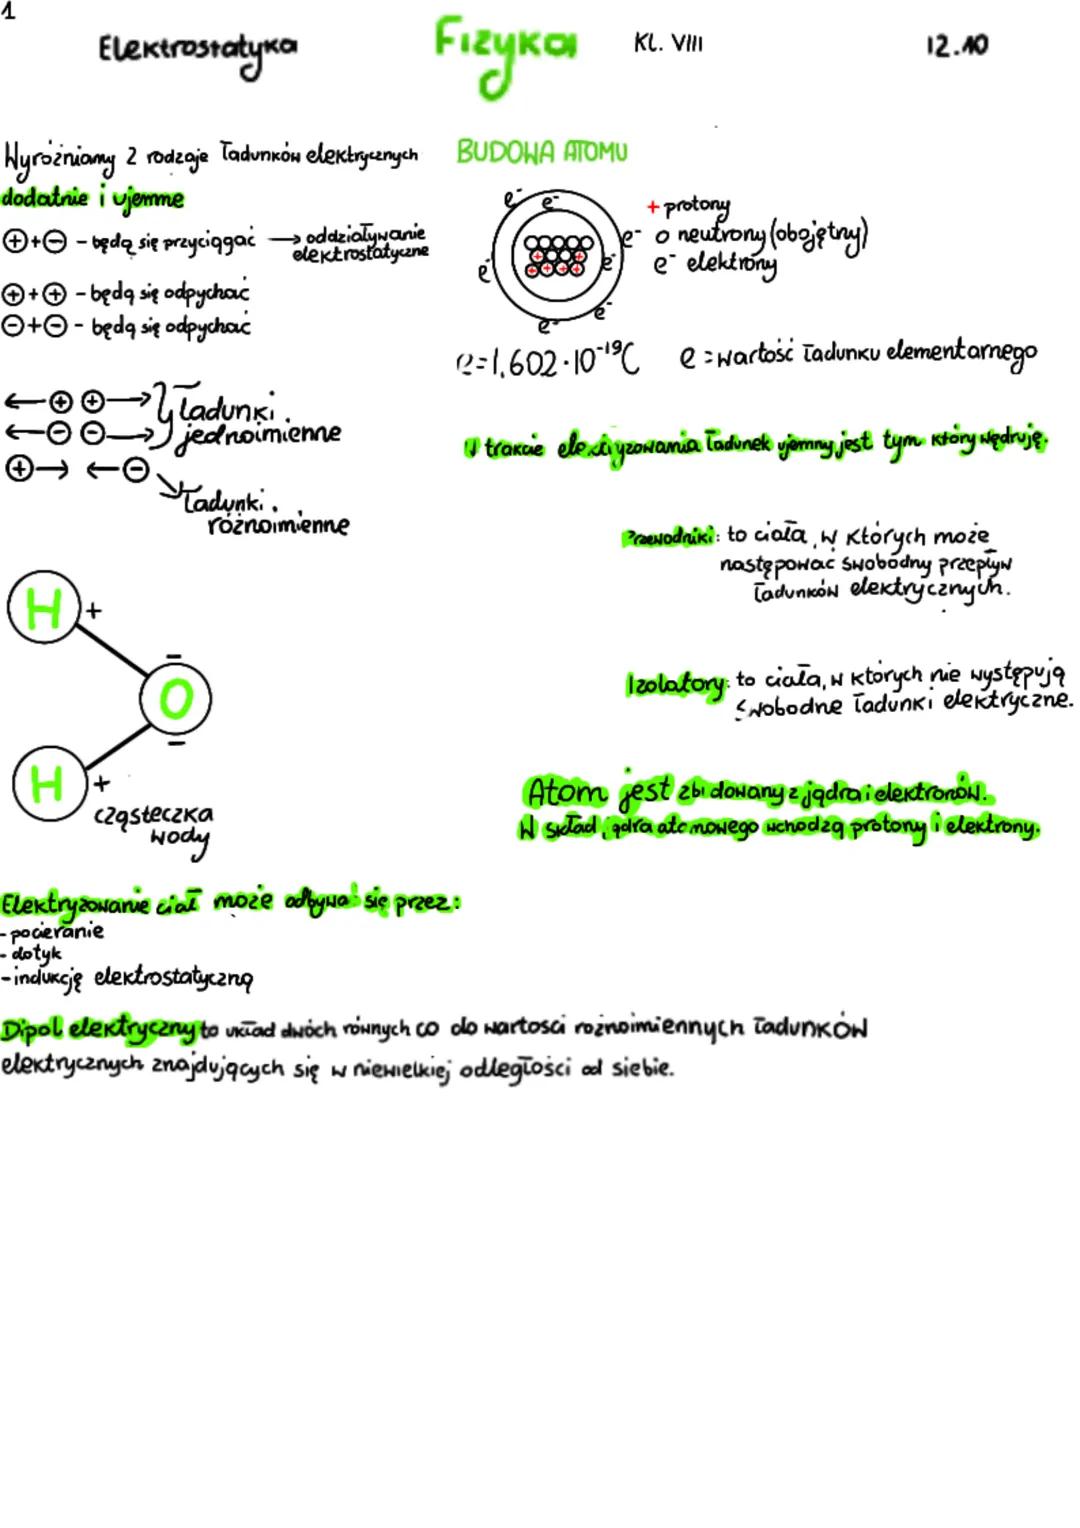 1
Elektrostatyka
Fizyka
KL. VIII
12.10
Wyróżniamy 2 rodzaje ładunków elektrycznych
dodatnie i ujemne
⊕+⊖ - będą się przyciągać → oddziaływanie
elektrostatyczne
⊕+⊕ - będą się odpychać
⊖+⊖ - będą się odpychać
←⊕ ⊕→
←⊖ ⊖→
Ładunki
jednoimienne
⊕→ ←⊖
Ładunki
różnoimienne
H +
-
O
-
H +
cząsteczka
wody
BUDOWA ATOMU
e- e-
e-
e-
e-
e-
e-
+ protony
o neutrony (obojętny)
e- elektrony
e=1,602·10⁻¹⁹C e = wartość ładunku elementarnego
W trakcie elektryzowania ładunek ujemny jest tym który wędruję.
Przewodniki: to ciała, w których może
następować swobodny przepływ
ładunków elektrycznych.
Izolatory: to ciała, w których nie występują
swobodne ładunki elektryczne.
Atom jest zbudowany z jądra i elektronów.
W skład jądra atomowego wchodzą protony i elektrony.
Elektryzowanie ciał może odbywać się przez:
- pocieranie
- dotyk
- indukcję elektrostatyczną
Dipol elektryczny to układ dwóch równych co do wartości róznoimiennych ładunków
elektrycznych znajdujących się w niewielkiej odległości od siebie.